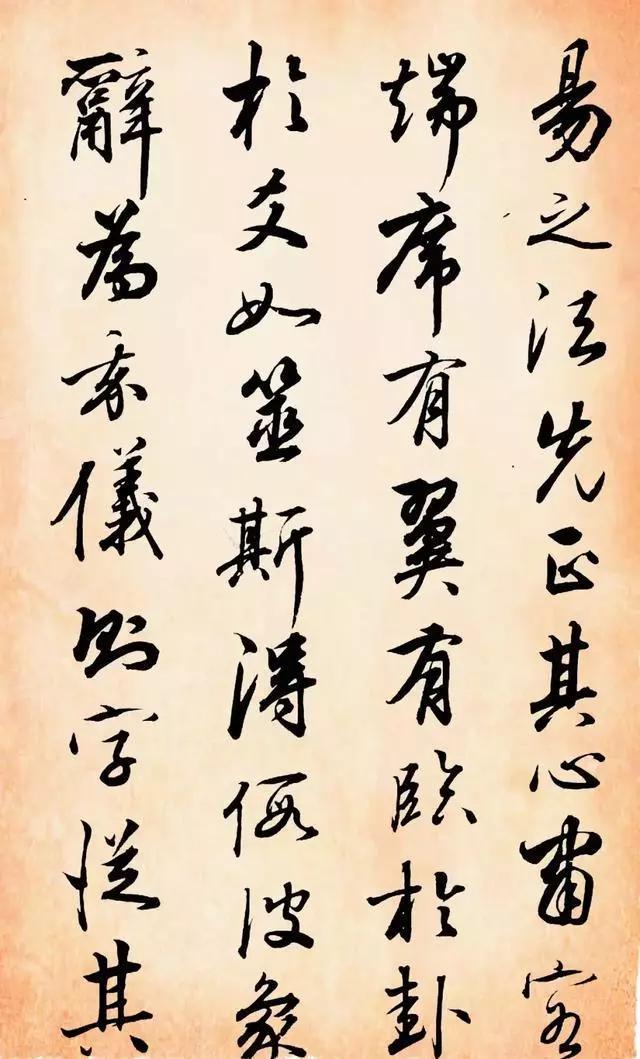 易之法先正其心肅容
端席有翼有臨於卦
於爻如筮斯得假彼象
辭為我儀則字從其